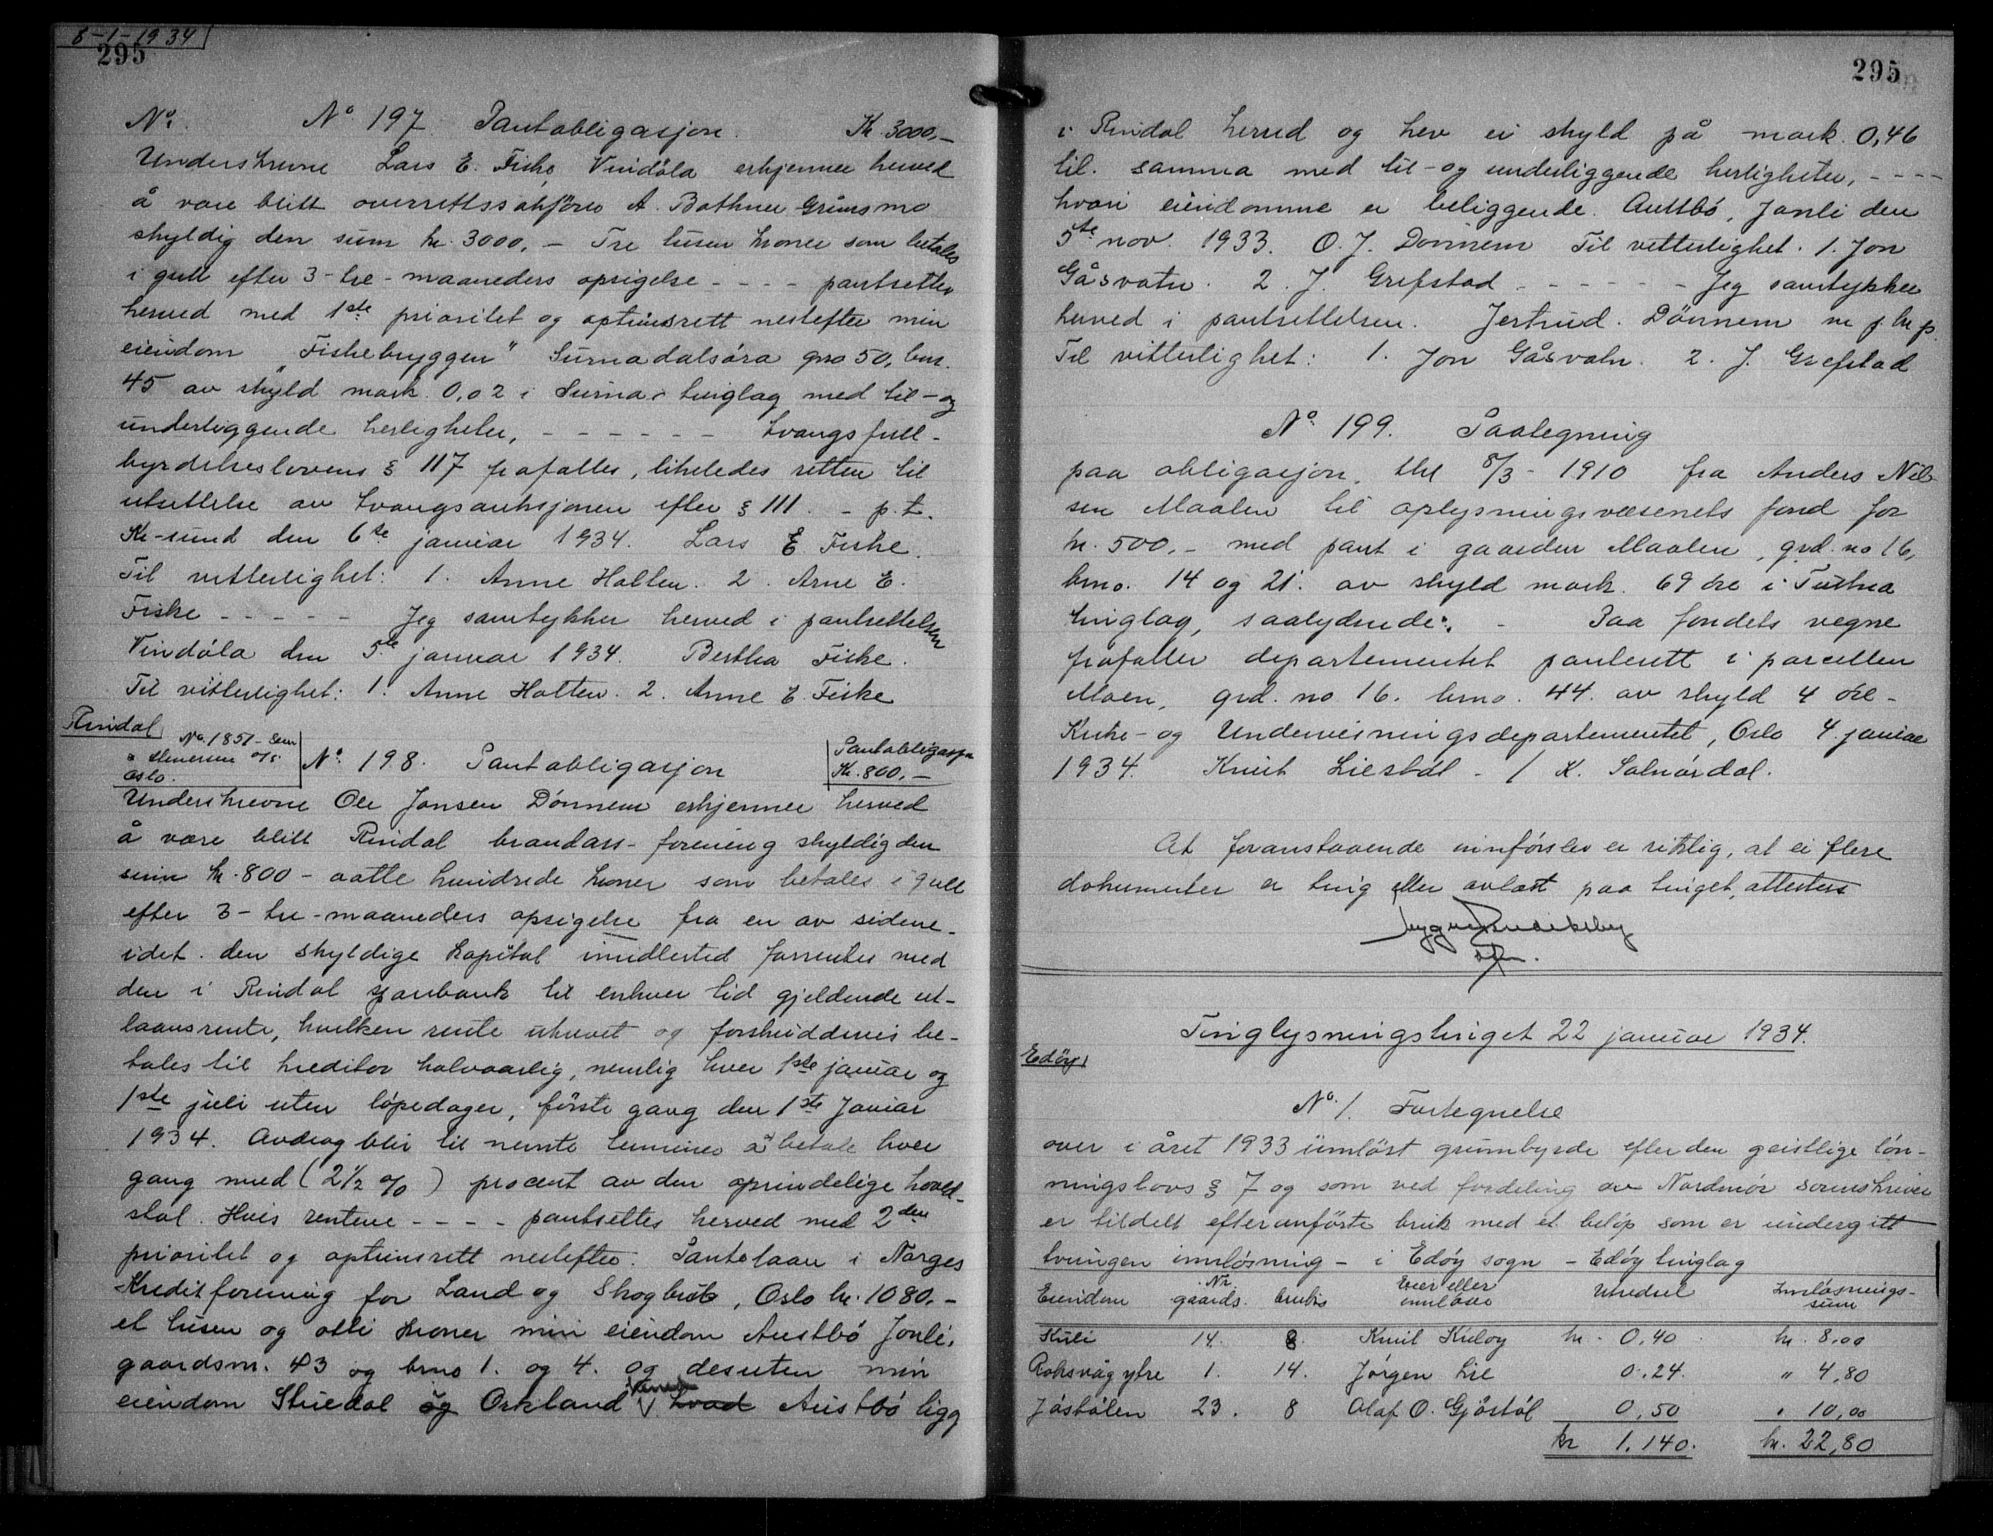 8-1-1934
295
No. No 197 Pantobligasjon. Kr 3000,-
Underskrevne Lars E. Fiske Vindöla erkjenner herved
å være blitt overrettssakförer A. Bothner Grimsmo
skyldig den sum kr. 3000,- Tre tusen kroner som betales
i gull efter 3-tre-maaneders opsigelse - - - - pantsetter
herved med 1ste prioritet og optrinsrett nestefter min
eiendom "Fiskebryggen" Surnadalsöra gno 50, bnr.
45 av skyld mark 0,02 i Surna tinglag med til- og
underliggende herligheter, - - - - - - tvangsfull-
byrdelseslovens § 117 frafalles, likeledes retten til
utsettelse av tvangsauksjonen efter § 111. - p.t.
Kr-sund den 6te januar 1934. Lars E Fiske.
Til vitterlighet: 1. Anne Halten. 2. Arne E.
Fiske - - - - - Jeg samtykker herved i pantsettelsen
Vindöla den 5te januar 1934. Bertha Fiske.
Til vitterlighet: 1. Anne Halten. 2. Arne E. Fiske
Rindal
No. 1851- Sem
o/s.
Oslo.
No. 198. Pantobligasjon
Pantobligasjon
Kr. 800,-
Underskrevne Ole Jonsen Dönnem erkjenner herved
å være blitt Rindal brandass-forening skyldig den
sum kr. 800 - aatte hundrede kroner som betales i gull
efter 3-tre-maaneders opsigelse fra en av sidene
idet den skyldige kapital imidlertid forrentes med
den i Rindal sparebank til enhver tid gjeldende ut-
laansrente, hvilken rente ukrævet og forskuddsvis be-
tales til kreditor halvaarlig, nemlig hver 1ste januar og
1ste juli uten löpedager, förste gang den 1ste Januar
1934. Avdrag blir til nevnte terminer å betale hver
gang med (2 1/2 %) procent av den oprindelige hoved-
stol. Hvis rentene - - - - pantsettes herved med 2den
prioritet og optrinsrett nestefter. Pantelaan i Norges
Kreditforening for Land og Skogbruk, Oslo kr. 1080,-
et tusen og otti kroner min eiendom Austbö Jonli,
gaardsnr. 43 og brno 1. og 4. og desuten min
eiendom Stuedal og Orkland hvad Austbö ligg
295
i Rindal herred og hev ei skyld på mark. 0,46
til. samma med til- og underliggende herligheter, - - - -
hvori eiendomme er beliggende. Austbö, Jonli den
5te nov. 1933. O. J. Dönnem Til vitterlighet. 1. Jon
Gåsvatn. 2. J. Grefstad - - - - - - Jeg samtykker
herved i pantsettelsen. Jertrud. Dönnem m p. h p.
Til vitterlighet: 1. Jon Gåsvatn. 2. J. Grefstad
No. 199. Paategning
paa obligasjon, tbl 8/3- 1910 fra Anders Nil-
sen Maalen til oplysningsvæsenets fond for
kr. 500,- med pant i gaarden Maalen, grd. no 16,
brno. 14 og 21. av skyld mark. 69 öre i Tustna
tinglag, saalydende:. - Paa fondets vegne
frafaller departementet panterett i parcellen
Moen, grd. no 16. brno. 44. av skyld 4 öre -
Kirke- og Undervisningsdepartementet, Oslo 4. januar
1934. Knut Liestöl - / K. Solnördal.
At foranstaaende innförsler er riktig, at ei flere
dokumenter er ting eller avlæst paa tinget, attesteres
Tinglysningstinget 22 januar 1934.
Edöy
No. 1. Fortegnelse
over i året 1933 innlöst grunnbyrde efter den geistlige lön-
ningslovs § 7 og som ved fordeling av Nordmör sorenskriver
er tildelt efteranförte bruk med et belöp som er undergitt
tvungen innlösning - i Edöy sogn - Edöy tinglag
Eiendom Nr. gaards. bruks Eier eller innlöser Utredsel Innlösnings-sum
Kuli 14. 8. Knut Kulöy kr. 0,40 kr. 8,00
Roksvåg ytre 1. 14. Jörgen Lie 0,24. " 4,80
Jöstölen 23. 8 Olaf O. Gjöstöl 0,50 " 10,00
kr 1,140. kr. 22,80